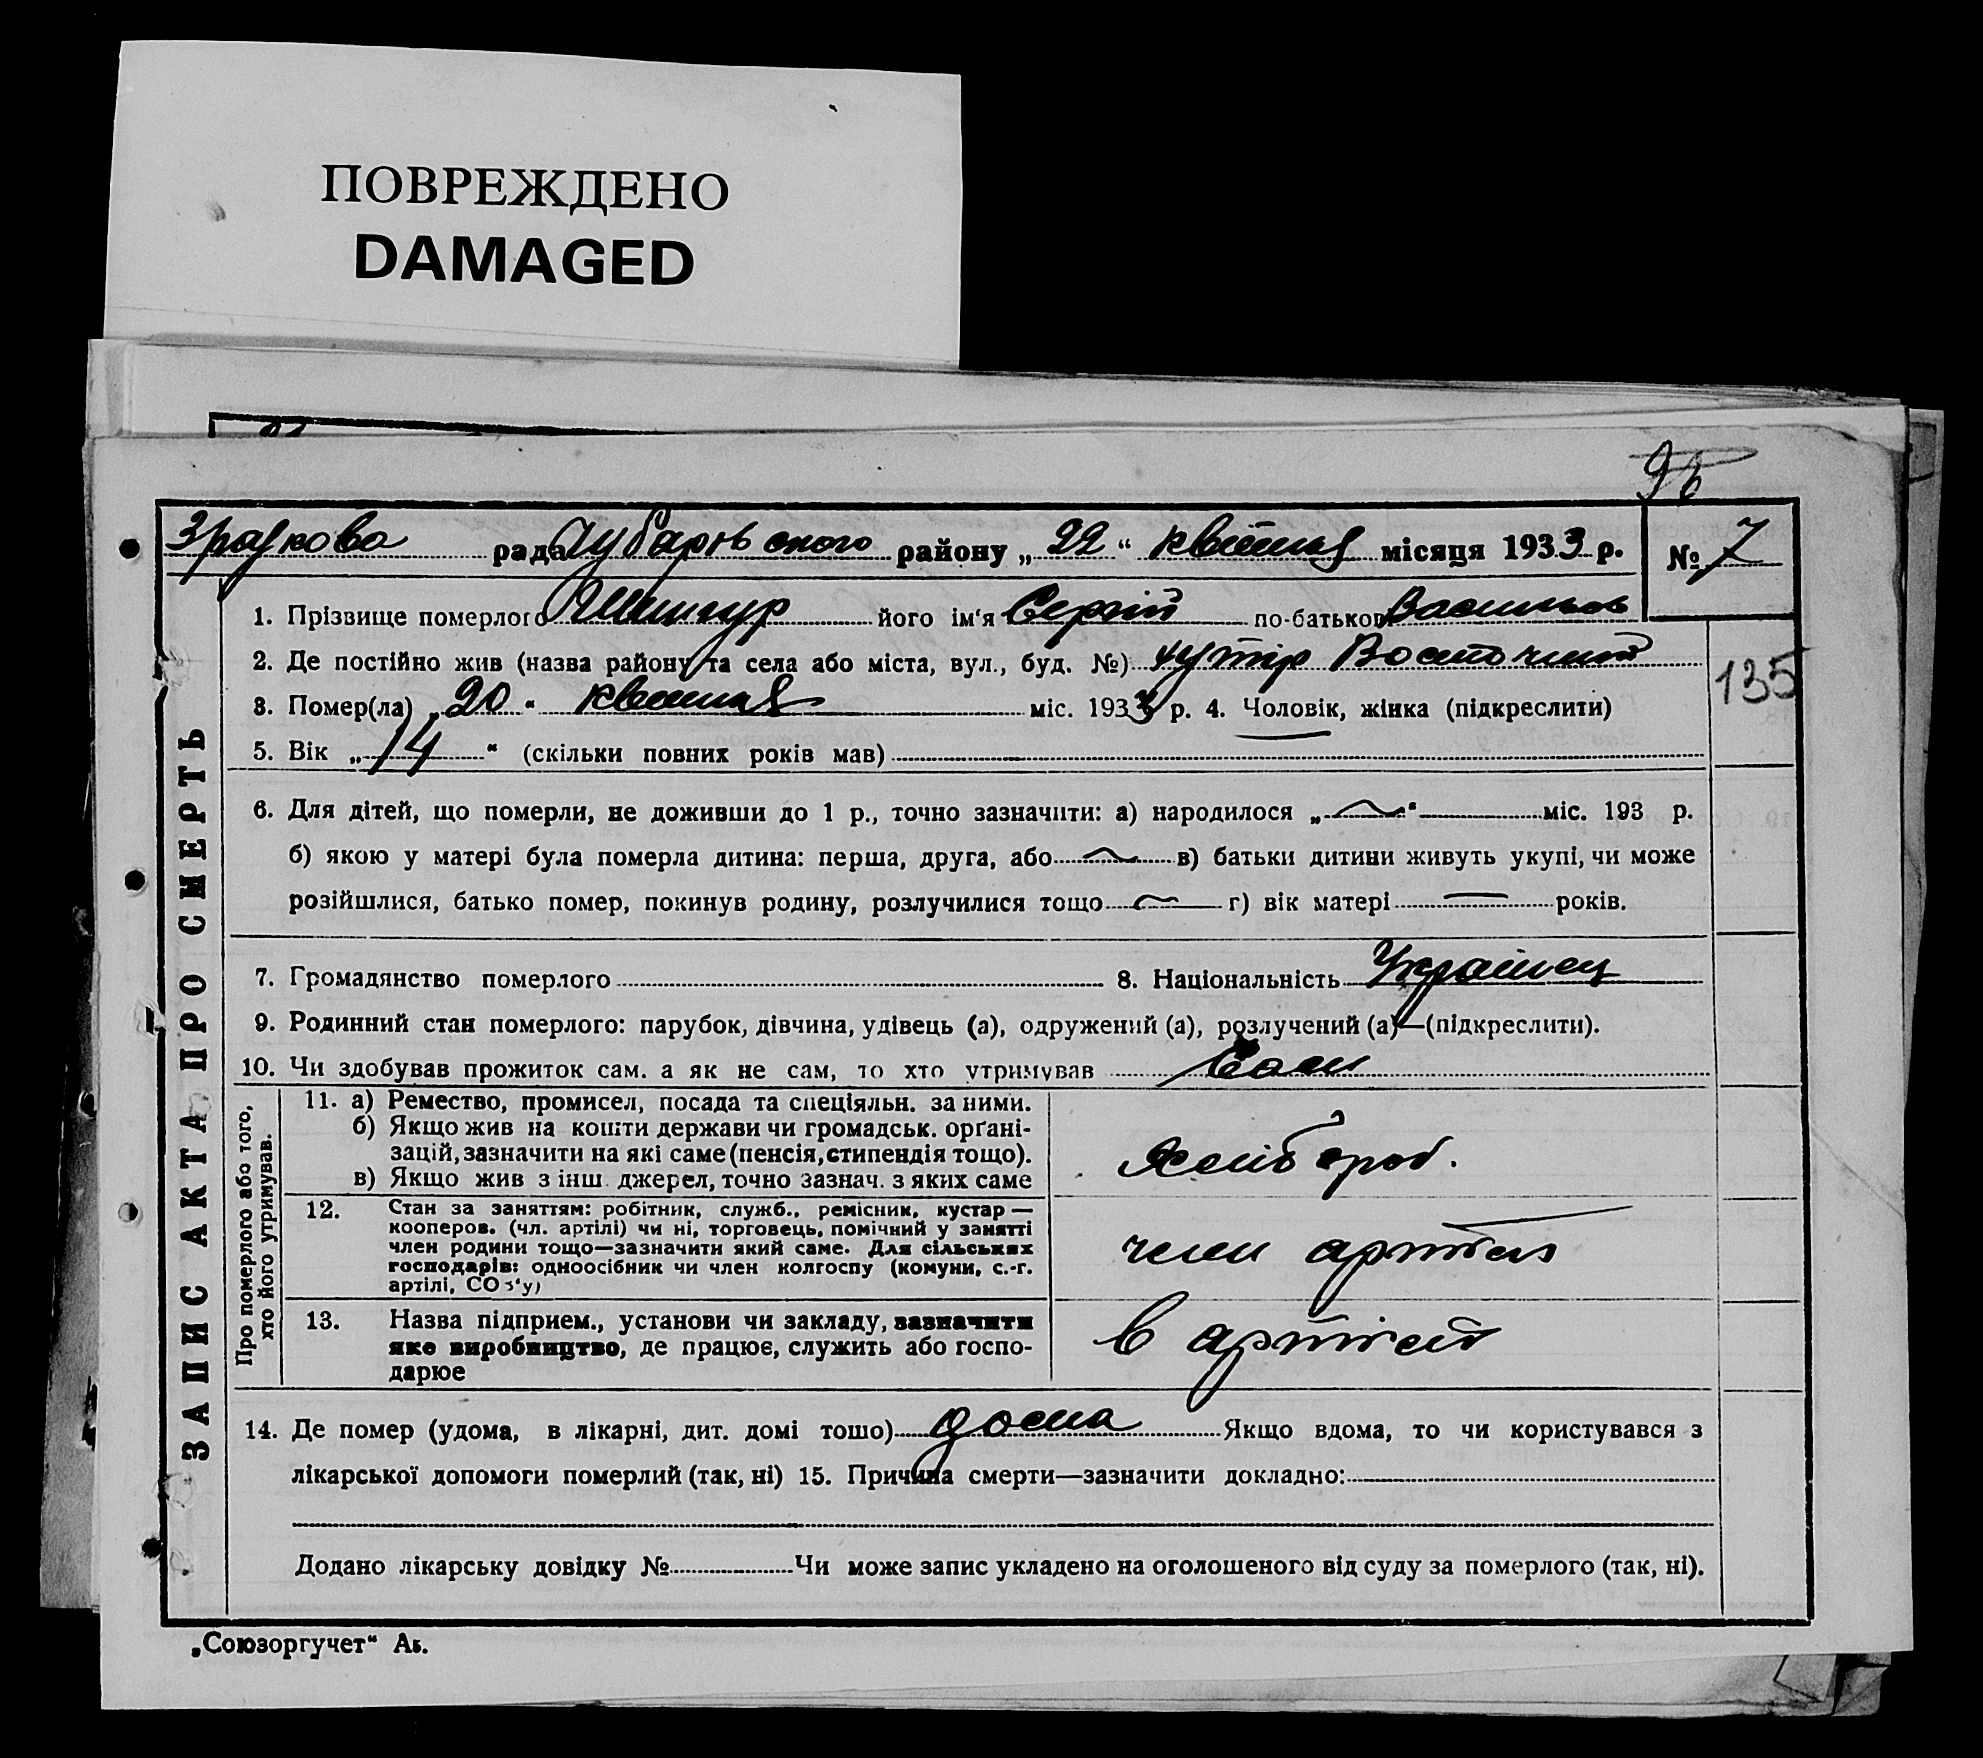 ПОВРЕЖДЕНО
DAMAGED
96
рада Чубарівського району „22“ квітня місяця 1933 р. № 7
1. Прізвище померлого його ім‘я Сергій по-батькові Васильов
2. Де постійно жив (назва району та села або міста, вул., буд. №) хутір Восточний
135
3. Помер(ла) „20“ квітня міс. 1933 р. 4. Чоловік, жінка (підкреслити)
5. Вік „14“ (скільки повних років мав)
6. Для дітей, що померли, не доживши до 1 р., точно зазначити: а) народилося „ “ міс. 193 р.
б) якою у матері була померла дитина: перша, друга, або в) батьки дитини живуть укупі, чи може
розійшлися, батько помер, покинув родину, розлучилися тощо г) вік матері років.
7. Громадянство померлого 8. Національність Українец
9. Родинний стан померлого: парубок, дівчина, удівець (а), одружений (а), розлучений (а)—(підкреслити).
10. Чи здобував прожиток сам. а як не сам, то хто утримував Сам
ЗАПИС АКТА ПРО СМЕРТЬ
Про померлого або того,
хто його утримував.
11. а) Ремество, промисел, посада та спеціяльн. за ними.
б) Якщо жив на кошти держави чи громадськ. орґані-
зацій, зазначити на які саме (пенсія, стипендія тощо).
в) Якщо жив з інш. джерел, точно зазнач. з яких саме
хлібороб.
12. Стан за заняттям: робітник, служб., ремісник, кустар—
кооперов. (чл. артілі) чи ні, торговець, помічний у занятті
член родини тощо—зазначити який саме. Для сільських
господарів: одноосібник чи член колгоспу (комуни, с.-г.
артілі, СОЗ‘у)
член артіл
13. Назва підприєм., установи чи закладу, зазначити
яке виробництво, де працює, служить або госпо-
дарює
в артілі
14. Де помер (удома, в лікарні, дит. домі тошо) дома Якщо вдома, то чи користувався з
лікарської допомоги померлий (так, ні) 15. Причина смерти—зазначити докладно:
Додано лікарську довідку № Чи може запис укладено на оголошеного від суду за померлого (так, ні).
„Союзоргучет“ Аб.